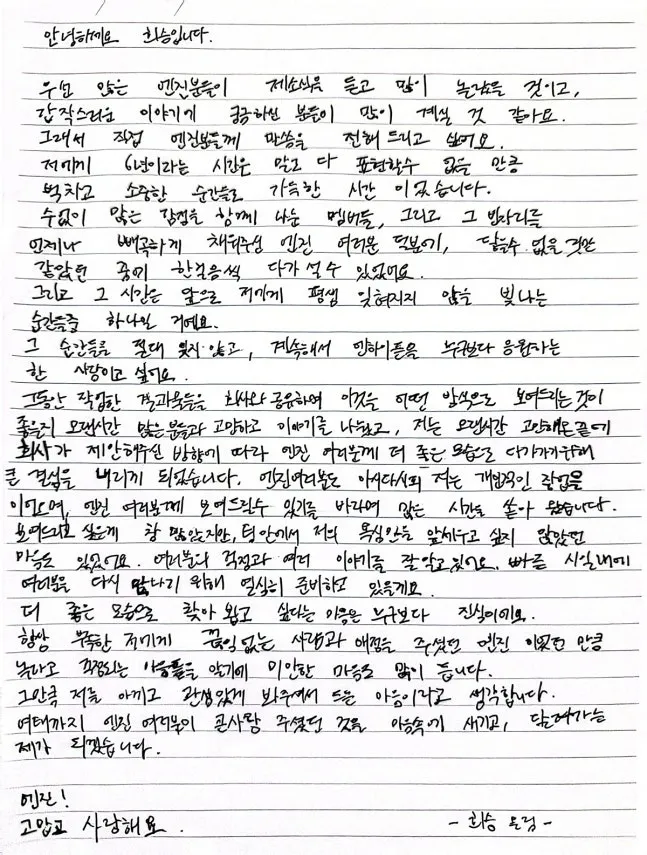 안녕하세요 희승입니다.
우선 많은 엔진분들이 제소식을 듣고 많이 놀랐을 것이고,
갑작스러운 이야기에 궁금하신 분들이 많이 계실 것 같아요.
그래서 직접 엔진분들께 말씀을 전해 드리고 싶어요.
저에게 6년이라는 시간은 말로 다 표현할수 없을 만큼
벅차고 소중한 순간들로 가득한 시간 이었습니다.
수없이 많은 감정을 함께 나눈 멤버들, 그리고 그 빈자리를
언제나 빼곡하게 채워주신 엔진 여러분 덕분에, 닿을수 없을 것만
같았던 꿈에 한걸음씩 다가 설 수 있었어요.
그리고 그 시간은 앞으로 저에게 평생 잊혀지지 않을 빛나는
순간들중 하나일 거에요.
그 순간들을 절대 잊지 않고, 계속해서 엔하이픈을 누구보다 응원하는
한 사람이고 싶어요.
그동안 작업한 결과물들을 회사와 공유하며 이것을 어떤 방식으로 보여드리는것이
좋을지 오랜시간 많은분들과 고민하고 이야기를 나눴고, 저는 오랜시간 고민해온끝에
회사가 제안해주신 방향에 따라 엔진 여러분께 더 좋은모습으로 다가가기위해
큰 결심을 내리게 되었습니다. 엔진여러분도 아시다시피 저는 개인적인 작업을
이어오며, 엔진 여러분께 보여드릴수 있기를 바라며 많은 시간을 쏟아 왔습니다.
보여드리고 싶은게 참 많았지만, 팀 안에서 저의 욕심만을 앞세우고 싶지 않았던
마음도 있었어요. 여러분의 걱정과 여러 이야기를 잘 알고 있어요. 빠른 시일내에
여러분을 다시 만나기 위해 열심히 준비하고 있을게요.
더 좋은 모습으로 찾아 뵙고 싶다는 마음은 누구보다 진심이에요.
항상 부족한 저에게 끊임 없는 사랑과 애정을 주셨던 엔진 이었던 만큼
놀라고 걱정되는 마음들을 알기에 미안한 마음도 많이 듭니다.
그만큼 저를 아끼고 관심있게 봐주셔서 드는 마음이라고 생각합니다.
여태까지 엔진 여러분이 큰사랑 주셨던 것을 마음속에 새기고, 달려가는
제가 되겠습니다.
엔진!
고맙고 사랑해요.
- 희승 드림 -